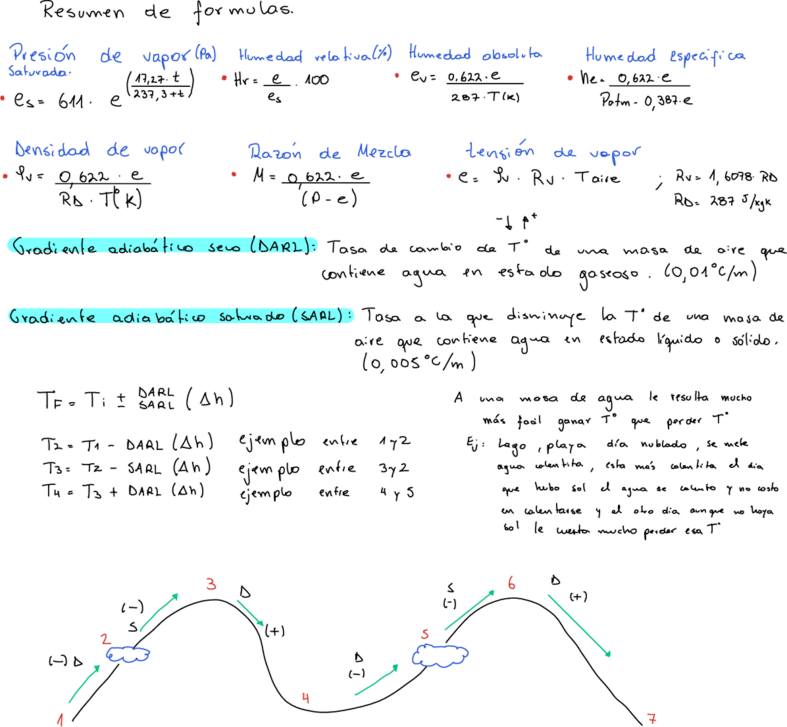 Resumen de formulas.
Presión de vapor (Pa) Saturada.
• es = 611 · e^((17,27 · t)/(237,3 + t))
Humedad relativa (%)
• Hr = e/es · 100
Humedad absoluta
• ev = (0,622 · e)/(287 · T(K))
Humedad Especifica
• he = (0,622 · e)/(Patm - 0,387·e)
Densidad de vapor
• ρv = (0,622 · e)/(RD · T°(K))
Razón de Mezcla
• M = (0,622 · e)/(P - e)
tensión de vapor
• e = ρv · Rv · Taire ; Rv = 1,6078 · RD
RD = 287 J/kgk
- ↓ ↑ +
Gradiente adiabático seco (DARL): Tasa de cambio de T° de una masa de aire que
contiene agua en estado gaseoso. (0,01°C/m)
Gradiente adiabático saturado (SARL): Tasa a la que disminuye la T° de una masa de
aire que contiene agua en estado líquido o sólido.
(0,005°C/m)
TF = Ti ± DARL SARL (Δh)
T2 = T1 - DARL (Δh) ejemplo entre 1 y 2
T3 = T2 - SARL (Δh) ejemplo entre 3 y 2
T4 = T3 + DARL (Δh) ejemplo entre 4 y 5
A una masa de agua le resulta mucho
más facil ganar T° que perder T°
Ej: Lago, playa día nublado, se mete
agua calentita, esta más calentita el dia
que hubo sol el agua se calento y no costo
en calentarse y al otro dia aunque no haya
sol le cuesta mucho perder esa T°
1
(-) D
2
S
(-)
3
D
(+)
4
D
(-)
5
S
(-)
6
D
(+)
7